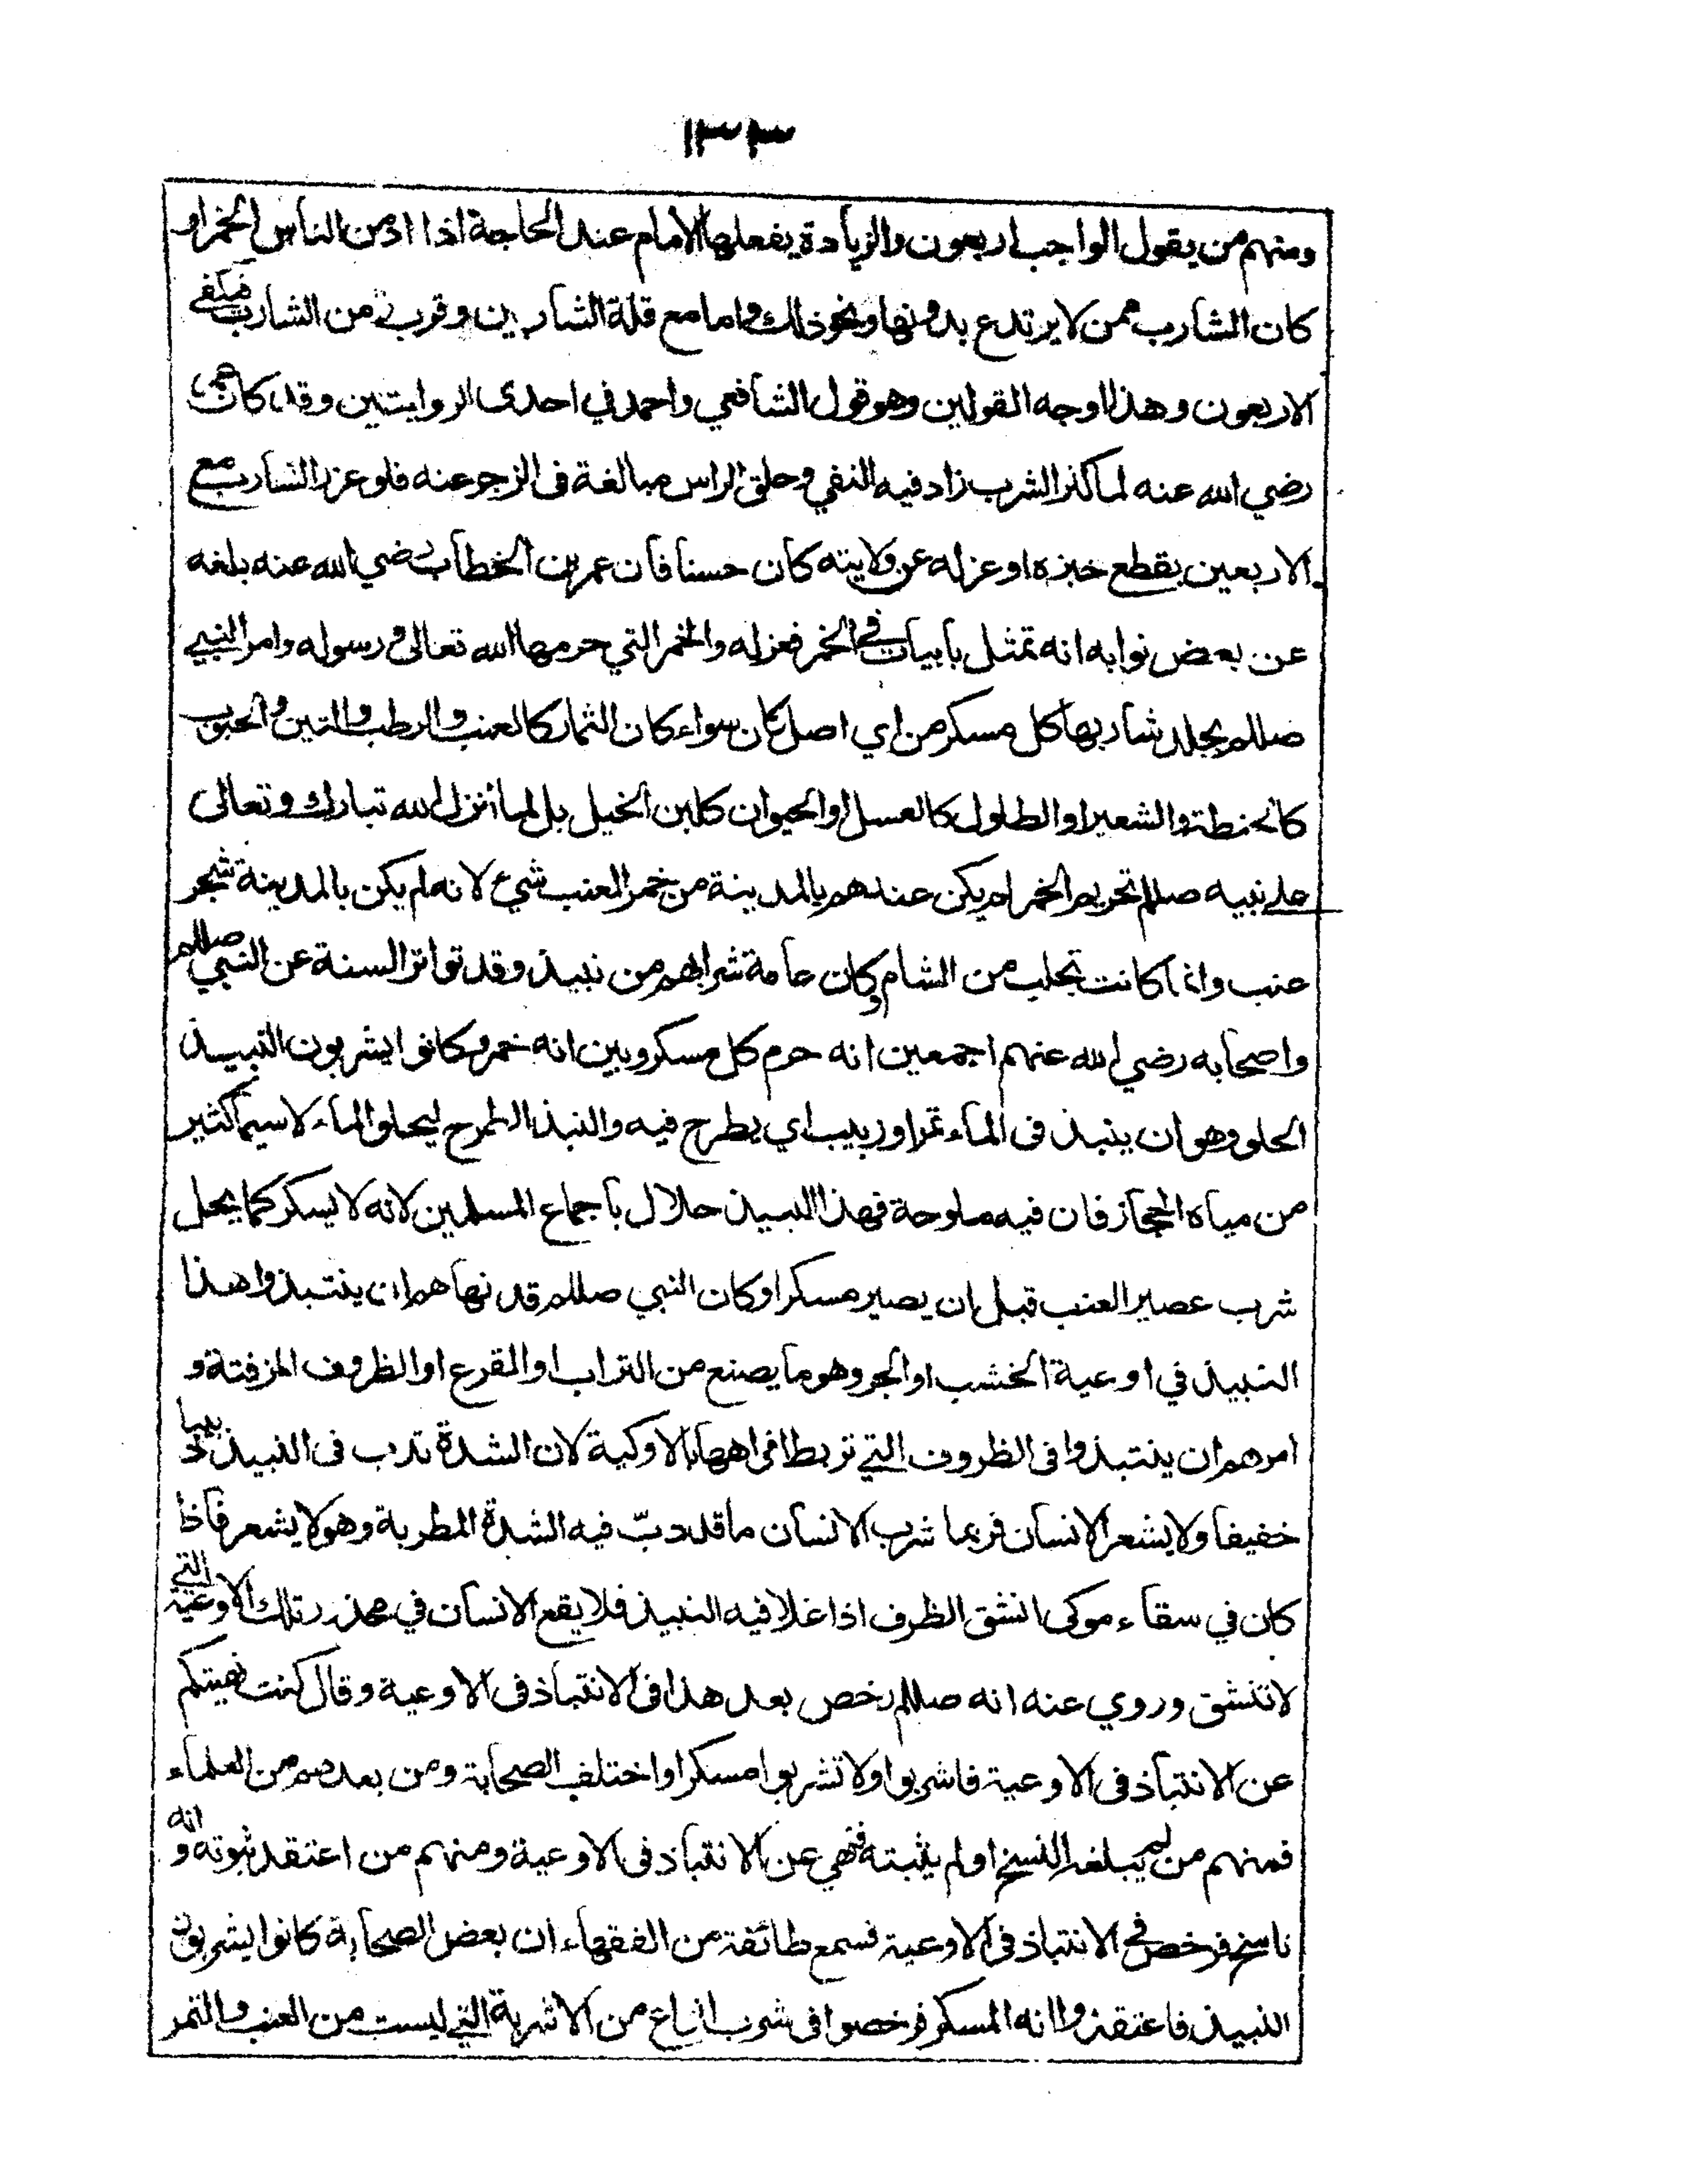 ١٣٣
ومنهم من يقول الواجب اربعون والزيادة يفعلها الامام عند الحاجة اذا ادمن الناس الخمر او
كان الشارب ممن لا يرتدع بدونها ونحو ذلك واما مع قلة الشاربين وقرب من الشارب فتكفى
الاربعون وهذا اوجه القولين وهو قول الشافعي واحمد في احدى الروايتين وقد كان عمر
رضي الله عنه لما كثر الشرب زاد فيه النفي وحلق الراس مبالغة فى الزجر عنه فلو عزر الشارب مع
الاربعين بقطع خبزه او عزله عن ولايته كان حسنا فان عمر بن الخطاب رضي الله عنه بلغه
عن بعض نوابه انه تمثل بابيات في الخمر فعزله والخمر التي حرمها الله تعالى ورسوله وامر النبي
صللم بجلد شاربها كل مسكر من اي اصل كان سواء كان الثمار كالعنب والرطب والتين والحبوب
كالحنطة والشعير او الطلول كالعسل او الحيوان كلبن الخيل بل لما أنزل الله تبارك وتعالى
على نبيه صللم تحريم الخمر لم يكن عندهم بالمدينة من خمر العنب شيئ لانه لم يكن بالمدينة شجر
عنب وانما كانت تجلب من الشام وكان عامة شرابهم من نبيذ وقد تواتر السنة عن النبي صللم
واصحابه رضي الله عنهم اجمعين انه حرم كل مسكر وبين انه خمر وكانوا يشربون النبيذ
الحلو وهو ان ينبذ فى الماء تمر او زبيب اي يطرح فيه والنبذ الطرح ليحلو الماء لا سيما كثير
من مياه الحجاز فان فيه ملوحة فهذا النبيذ حلال باجماع المسلمين لانه لا يسكر كما يحل
شرب عصير العنب قبل ان يصير مسكرا وكان النبي صللم قد نهاهم ان ينتبذوا هذا
النبيذ في اوعية الخشب او الجر وهو ما يصنع من التراب او القرع او الظروف المزفتة و
امرهم ان ينتبذوا فى الظروف التي تربط افواهها بالاوكية لان الشدة تدب فى النبيذ دبيبا
خفيفا ولا يشعر الانسان فربما شرب الانسان ما قد دبّ فيه الشدة المطربة وهو لا يشعر فاذا
كان في سقاء موكى انشق الظرف اذا غلا فيه النبيذ فلا يقع الانسان في محذور تلك الاوعية التي
لا تنشق وروي عنه انه صللم رخص بعد هذا فى الانتباذ فى الاوعية وقال كنت نهيتكم
عن الانتباذ فى الاوعية فاشربوا ولا تشربوا مسكرا واختلف الصحابة ومن بعدهم من العلماء
فمنهم من لم يبلغه النسخ او لم يثبته فنهي عن الانتباذ فى الاوعية ومنهم من اعتقد ثبوته وانه
ناسخ فرخص في الانتباذ فى الاوعية فسمع طائفة من الفقهاء ان بعض الصحابة كانوا يشربون
النبيذ فاعتقدوا انه المسكر فرخصوا فى شرب انواع من الاشربة التي ليست من العنب والتمر